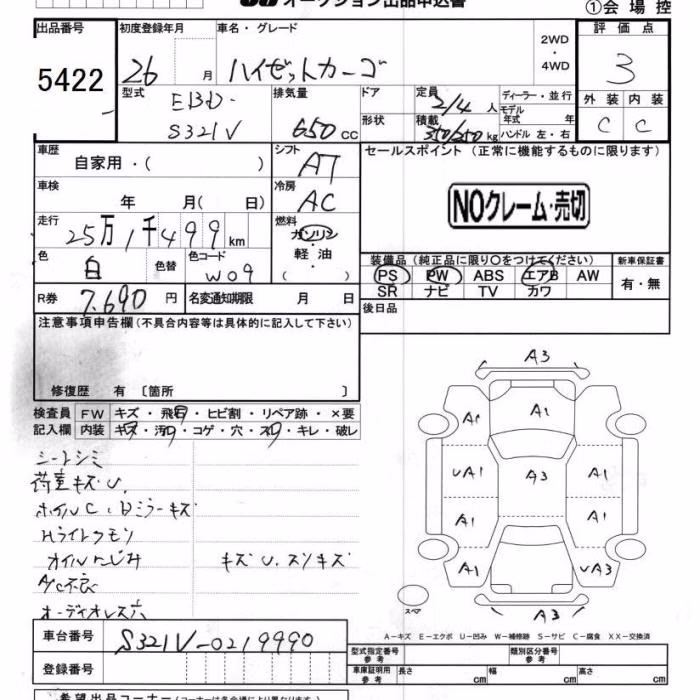 オークション出品申込書
①会場控
出品番号
5422
初度登録年月
26 月
車名・グレード
ハイゼットカーゴ
2WD
・
4WD
評価点
3
外装 内装
C C
型式
EBD-
S321V
排気量
650 cc
ドア
形状
定員
2/4 人
積載
350/250 kg
ディーラー・並行
モデル
年式 年
ハンドル 左・右
車歴
自家用・( )
シフト
AT
セールスポイント (正常に機能するものに限ります)
NOクレーム・売切
車検
年 月( 日)
冷房
AC
走行
25万1千499 km
燃料
ガソリン
軽油
( ・ )
色
白
色替
色コード
W09
装備品 (純正品に限り○をつけてください)
PS PW ABS エアB AW
SR ナビ TV カワ
新車保証書
有・無
R券
7,690 円
名変通知期限 月 日
後日品
注意事項申告欄(不具合内容等は具体的に記入して下さい)
修復歴 有 〔箇所 〕
検査員
記入欄
FW キズ・飛石・ヒビ割・リペア跡・×要
内装 キズ・汚レ・コゲ・穴・スレ・キレ・破レ
シートシミ
荷室キズU.
ホイルC.Dミラーキズ
Hライトクモリ
オイルにじみ キズU.スリキズ
A/C不良
オーディオレス穴
A3
A1 A1
UA1 A3 A1
A1 A1
A1 UA3
A3
スペア
A-キズ E-エクボ U-凹み W-補修跡 S-サビ C-腐食 XX-交換済
車台番号
S321V-0219990
登録番号
型式指定番号
参考
類別区分番号
参考
車庫証明用
参考
長さ cm 幅 cm 高さ cm
希望出品コーナー(コーナーは各会場により異なります)